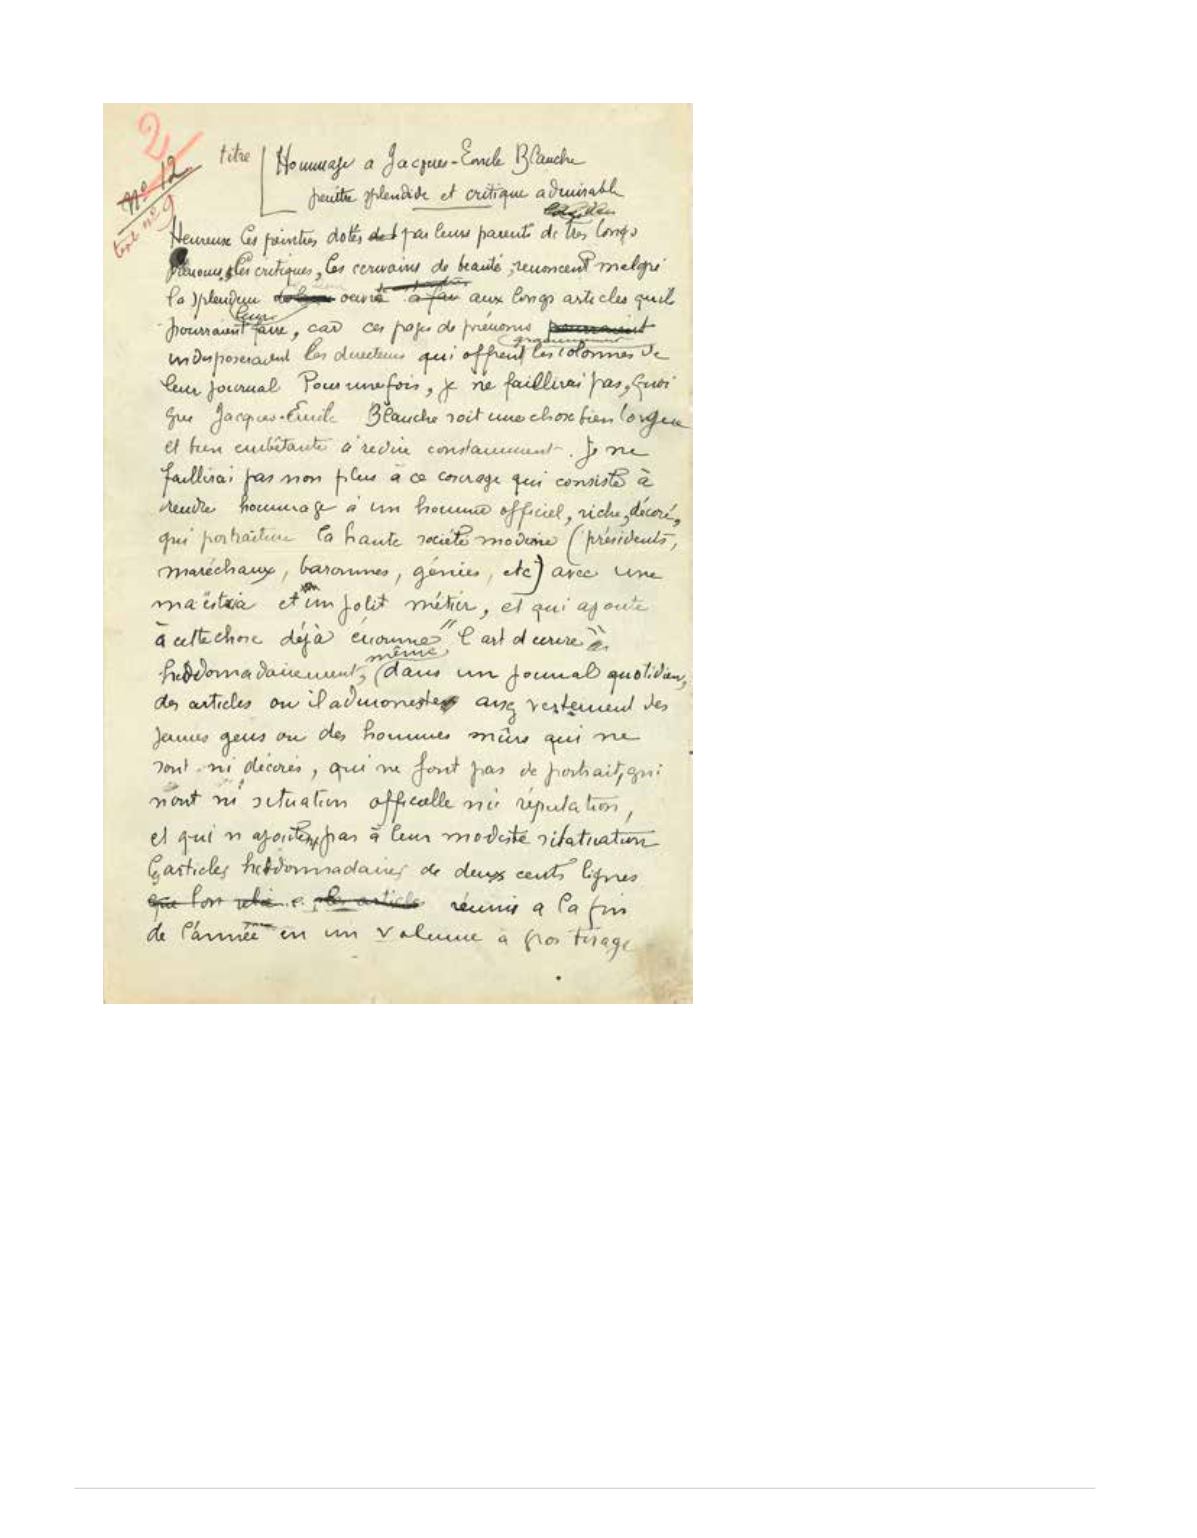 2
nº 12
text nº 9
titre
Hommage a Jacques-Emile Blanche
peintre splendide et critique admirable
Heureux les peintres dotés par leurs parents de très longs
prénoms, les critiques, les ecrivains de beauté, renoncent malgré
la splendeur oeuvre à fai aux longs articles quil
leurs
pourraient faire, car ces pages de prénoms pourraient
gracieusement
indisposeraient les directeurs qui offrent les colonnes de
leur journal Pour une fois, je ne faillirai pas, quoi
que Jacques-Emile Blanche soit une chose bien longue
et bien embêtante à redire constamment. Je ne
faillirai pas non plus à ce courage qui consiste à
rendre hommage à un homme officiel, riche, décoré,
qui portraiture la haute société moderne (présidents,
maréchaux, baronnes, génies, etc) avec une
maëstria et un joli métier, et qui ajoute
à cette chose déjà énorme "l'art d ecrire"
même
hebdomadairement, (dans un journal quotidien,
des articles ou il admoneste assez vertement des
jeunes gens ou des hommes mûrs qui ne
sont ni décorés, qui ne font pas de portrait, qui
n'ont ni situation officielle ni réputation,
et qui n ajoutent pas à leur modeste situation
articles hebdomadaires de deux cents lignes
que l'on relie article réunis a la fin
de l'année en un volume a gros tirage